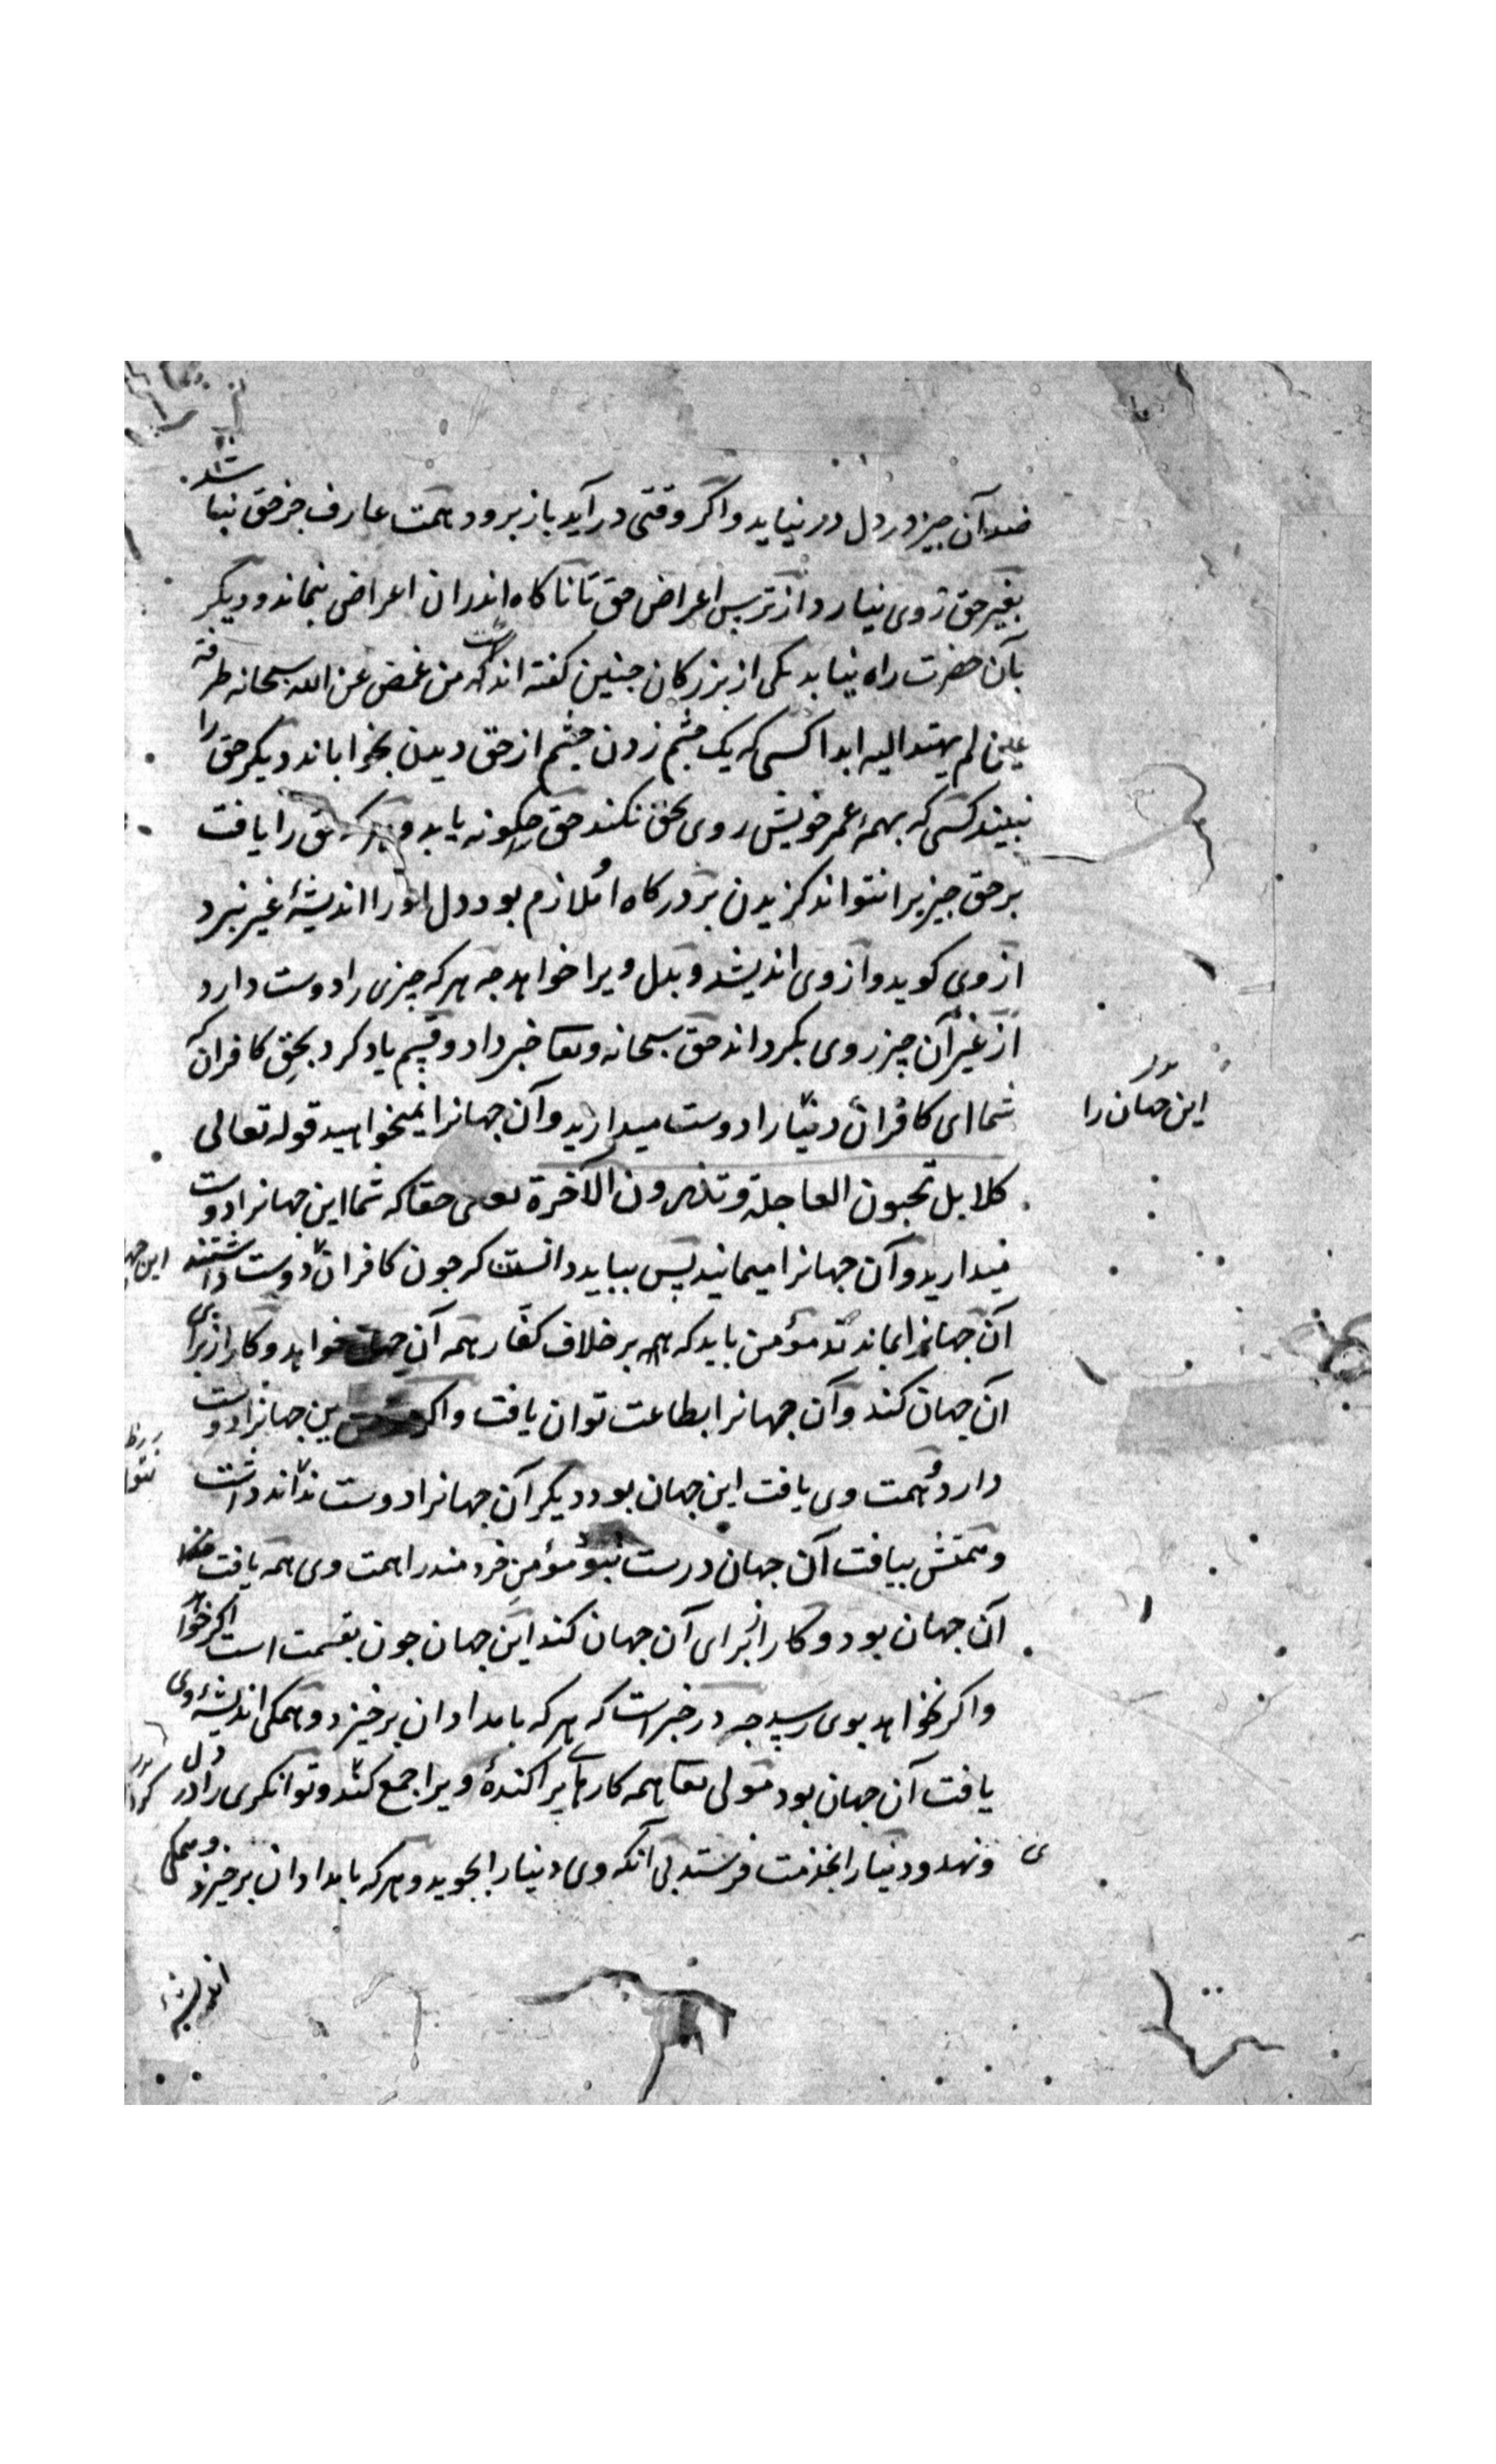 ضد آن چیز در دل در نیاید و اگر وقتی در آید باز برود همت عارف جز حق نباشد
بغیر حق روی نیارد از ترس اعراض حق تا ناکاه اندران اعراض نماند و دیگر
بآن حضرت راه نیابد یکی از بزرکان جنین کفته اند که من غمض عن الله سبحانه طرفة
عین لم یهتد الیه ابدا کسی که یک چشم زدن چشم از حق دیدن بخواباند دیکر حق را
نبیند کسی که بهمه عمر خویش روی بحق نکند حق چکونه یابد و هرکه حق را یافت
بر حق چیزیرا نتواند کزیدن بر درکاه او ملازم بود دل او را اندیشۀ غیر نبرد
از وی کوید و از وی اندیشد و بدل ویرا خواهد جه هرکه چیزی را دوست دارد
از غیر آن چیز روی بکرداند حق سبحانه وتعا خبر داد و قسم یاد کرد بحق کافران که
شما ای کافران دنیا را دوست میدارید و آن جهانرا نمیخواهید قوله تعالی
این جهان را
کلا بل تحبون العاجلة وتذرون الآخرة یعنی حقا که شما این جهانرا دوست
میدارید و آن جهانرا میمانید پس بباید دانست که جون کافران دوست داشتند
آن جهانرا بماندند مؤمن باید که بر خلاف کفار همه آن جهان خواهد و کار از برای
آن جهان کند و آن جهانرا بطاعت توان یافت و اکر این جهانرا دوست
دارد و همت وی یافت این جهان بود دیکر آن جهانرا دوست نداند داشت
و همتش بیافت آن جهان درست نبود مؤمن خردمند را همت وی همه یافت
آن جهان بود و کار از برای آن جهان کند این جهان جون بقسمت است اکر خواهد
و اکر نخواهد بوی رسید جه در خبر است که هرکه بامدادان برخیزد و همکی اندیشۀ وی
یافت آن جهان بود مولی تعا همه کارهای پراکندۀ ویرا جمع کند و توانکری را در دل
وی نهد و دنیا را بخدمت فرستد بی آنکه وی دنیا را بجوید و هرکه بامدادان برخیزد و همکی
اندیشۀ